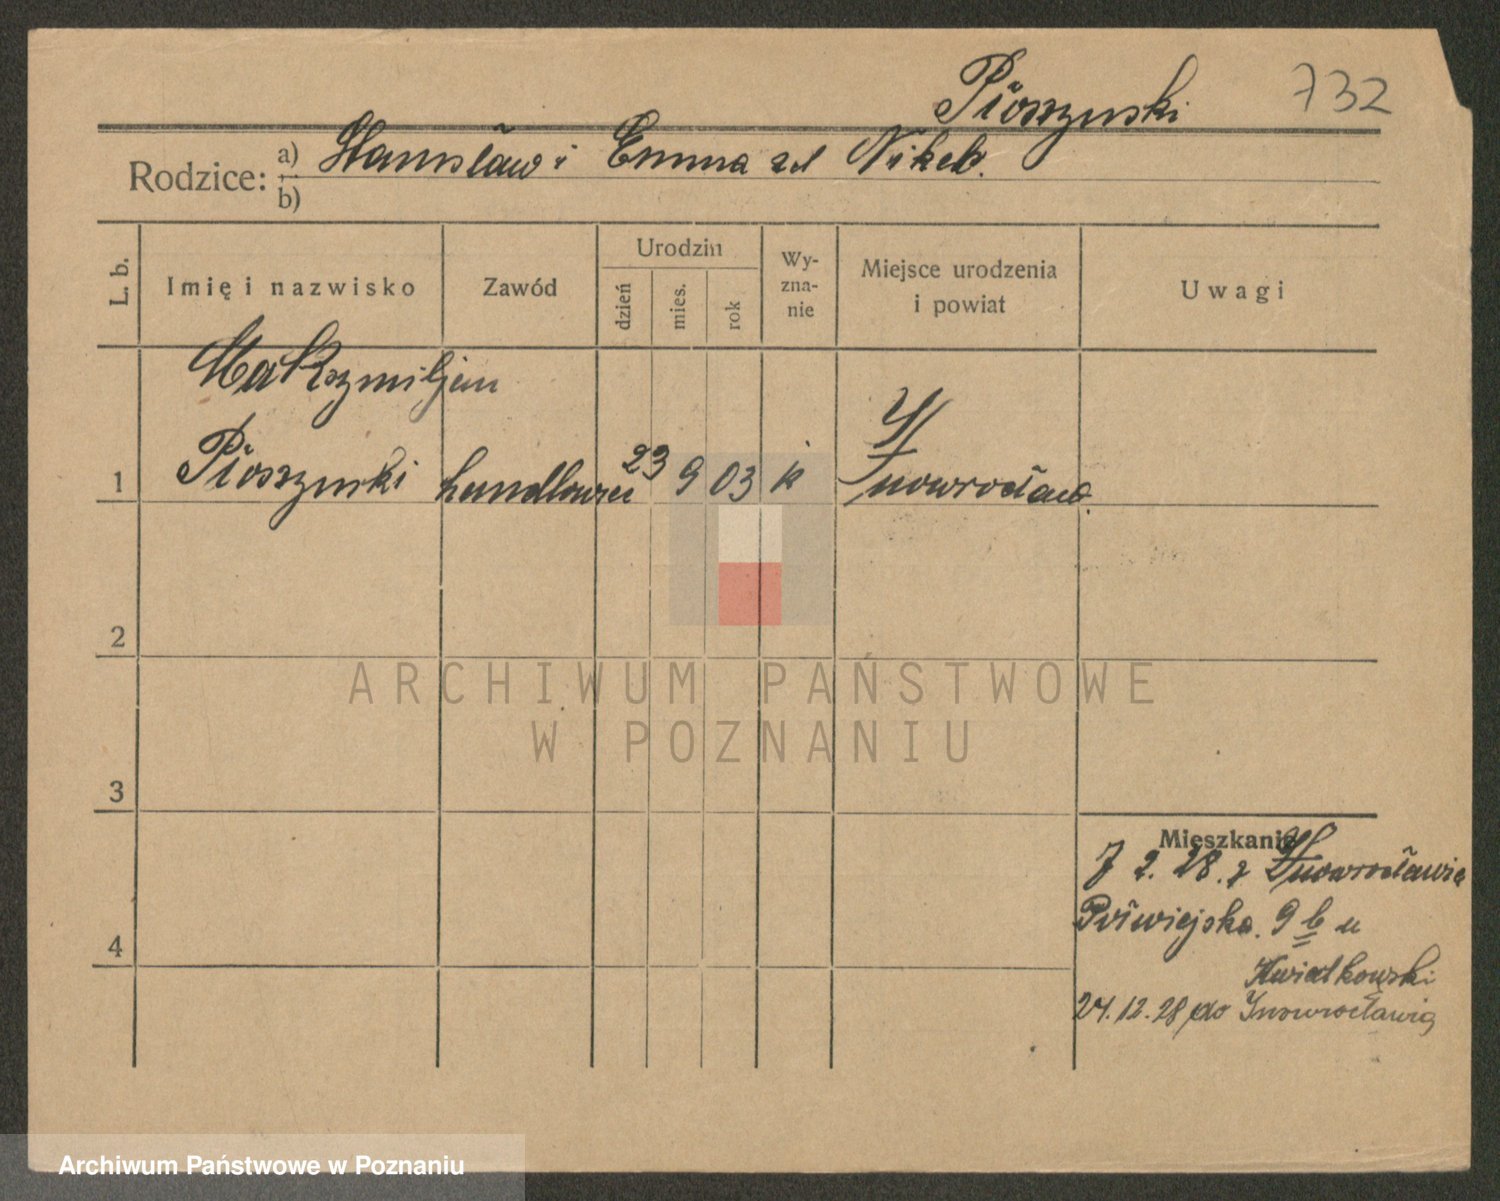 Pioszynski 732
Rodzice: a) Stanisław i Emma zd Nikel.
b)
L. b. Imię i nazwisko Zawód Urodzin dzień mies. rok Wy-zna-nie Miejsce urodzenia i powiat Uwagi
Maksymiljan
1 Pioszynski handlowiec 23 9 03 k Inowrocław.
2
3
4
Mieszkanie
7 2. 28. z Inowrocławia
Półwiejska. 9 b u
Kwiatkowski
24.12.28 do Inowrocławia
ARCHIWUM PAŃSTWOWE
W POZNANIU
Archiwum Państwowe w Poznaniu